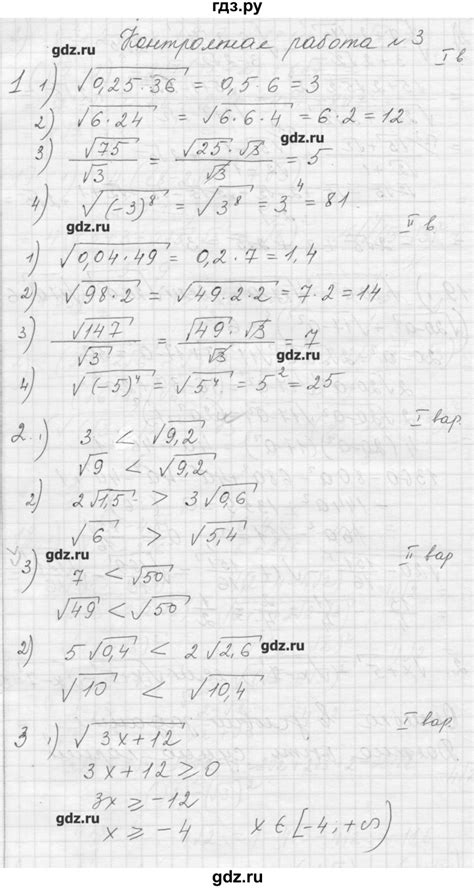 гдз.ру
Контрольная работа № 3
I в
gdz.ru
1 1) √0,25·36 = 0,5·6 = 3
2) √6·24 = √6·6·4 = 6·2 = 12
gdz.ru
3) √75/√3 = √25·√3/√3 = 5
4) √(-3)⁸ = √3⁸ = 3⁴ = 81.
gdz.ru
II в
1) √0,04·49 = 0,2·7 = 1,4
2) √98·2 = √49·2·2 = 7·2 = 14
gdz.ru
3) √147/√3 = √49·√3/√3 = 7
4) √(-5)⁴ = √5⁴ = 5² = 25
gdz.ru
I вар.
2. 1) 3 < √9,2
√9 < √9,2
2) 2√1,5 > 3√0,6
gdz.ru
√6 > √5,4
II вар
3) 7 < √50
gdz.ru
√49 < √50
2) 5√0,4 < 2√2,6
gdz.ru
√10 < √10,4
gdz.ru
I вар.
3 1) √3x+12
3x+12 ≥ 0
3x ≥ -12
gdz.ru
x ≥ -4 x ∈ [-4; +∞)
gdz.ru